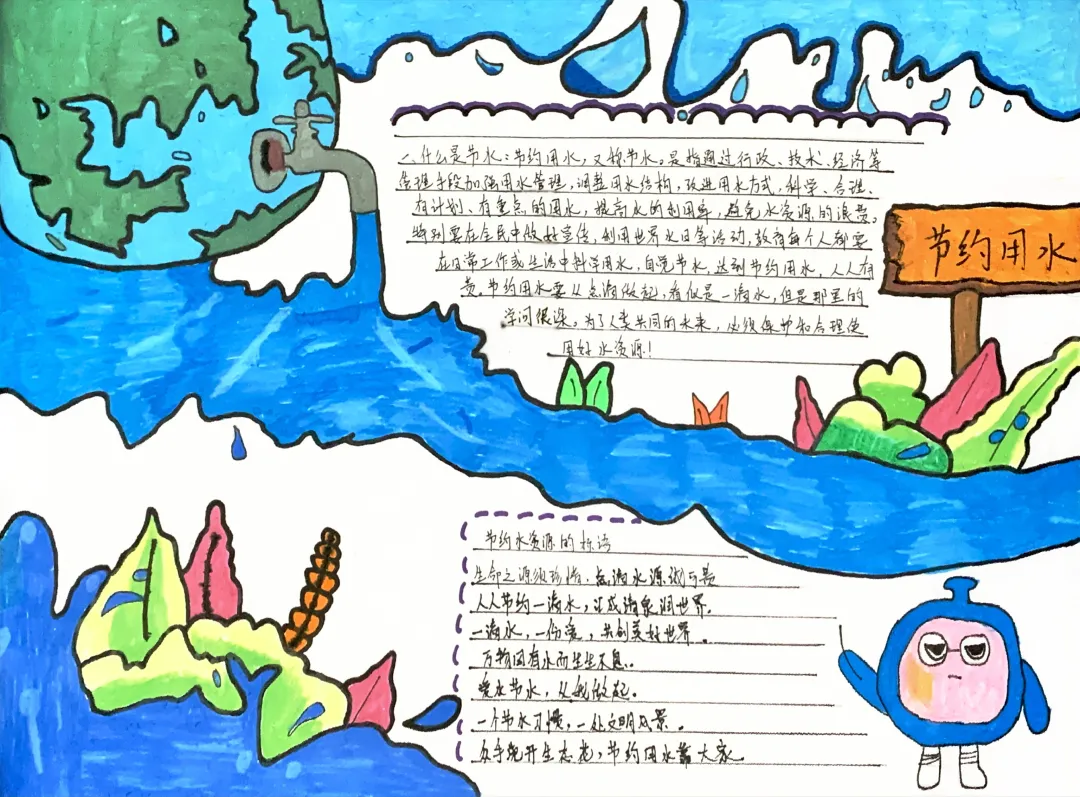 一、什么是节水:节约用水,又称节水。是指通过行政、技术、经济等
管理手段加强用水管理,调整用水结构,改进用水方式,科学、合理、
有计划、有重点的用水,提高水的利用率,避免水资源的浪费。
特别要在全民中做好宣传,利用世界水日等活动,教育每个人都要
在日常工作或生活中科学用水,自觉节水,达到节约用水,人人有
责。节约用水要从点滴做起,看似是一滴水,但是那里的
学问很深。为了人类共同的未来,必须保护和合理使
用好水资源!
节约用水
节约水资源的标语
生命之源须珍惜,点滴水源诚可贵
人人节约一滴水,汇成清泉润世界.
一滴水,一份爱,共创美好世界。
万物因有水而生生不息.
爱水节水,从我做起.
一个节水习惯,一处文明风景.
众手浇开生态花,节约用水靠大家.